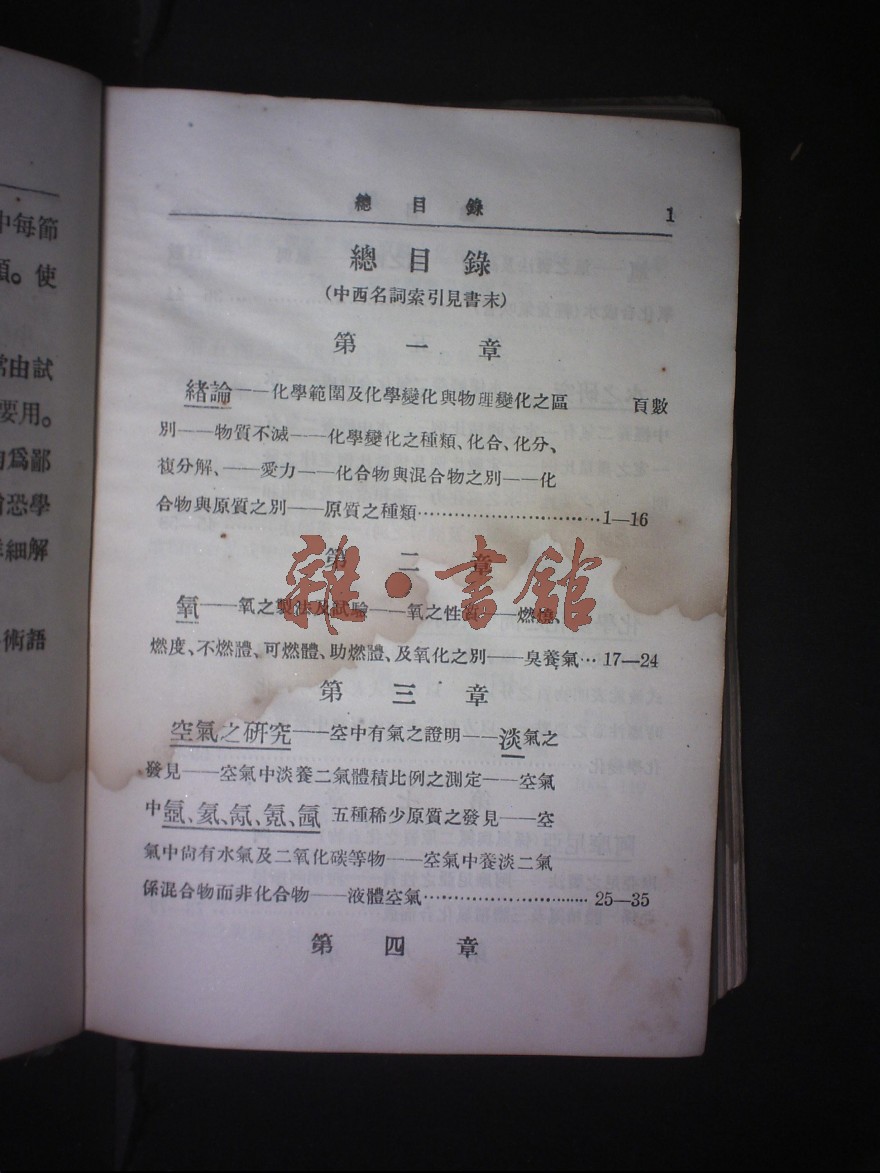 中每節
頁。使
常由試
要用。
爲鄙
恐學
細解
術語
總目錄 1
總目錄
(中西名詞索引見書末)
第一章
緒論——化學範圍及化學變化與物理變化之區 頁數
別——物質不滅——化學變化之種類、化合、化分、
複分解、——愛力——化合物與混合物之別——化
合物與原質之別——原質之種類……………………1—16
第二章
雜·書館
氧——氧之製法及試驗——氧之性質——燃燒、
燃度、不燃體、可燃體、助燃體、及氧化之別——臭養氣…17—24
第三章
空氣之研究——空中有氣之證明——淡氣之
發見——空氣中淡養二氣體積比例之測定——空氣
中氬、氦、氖、氪、氙五種稀少原質之發見——空
氣中尙有水氣及二氧化碳等物——空氣中養淡二氣
係混合物而非化合物——液體空氣……………………25—35
第四章